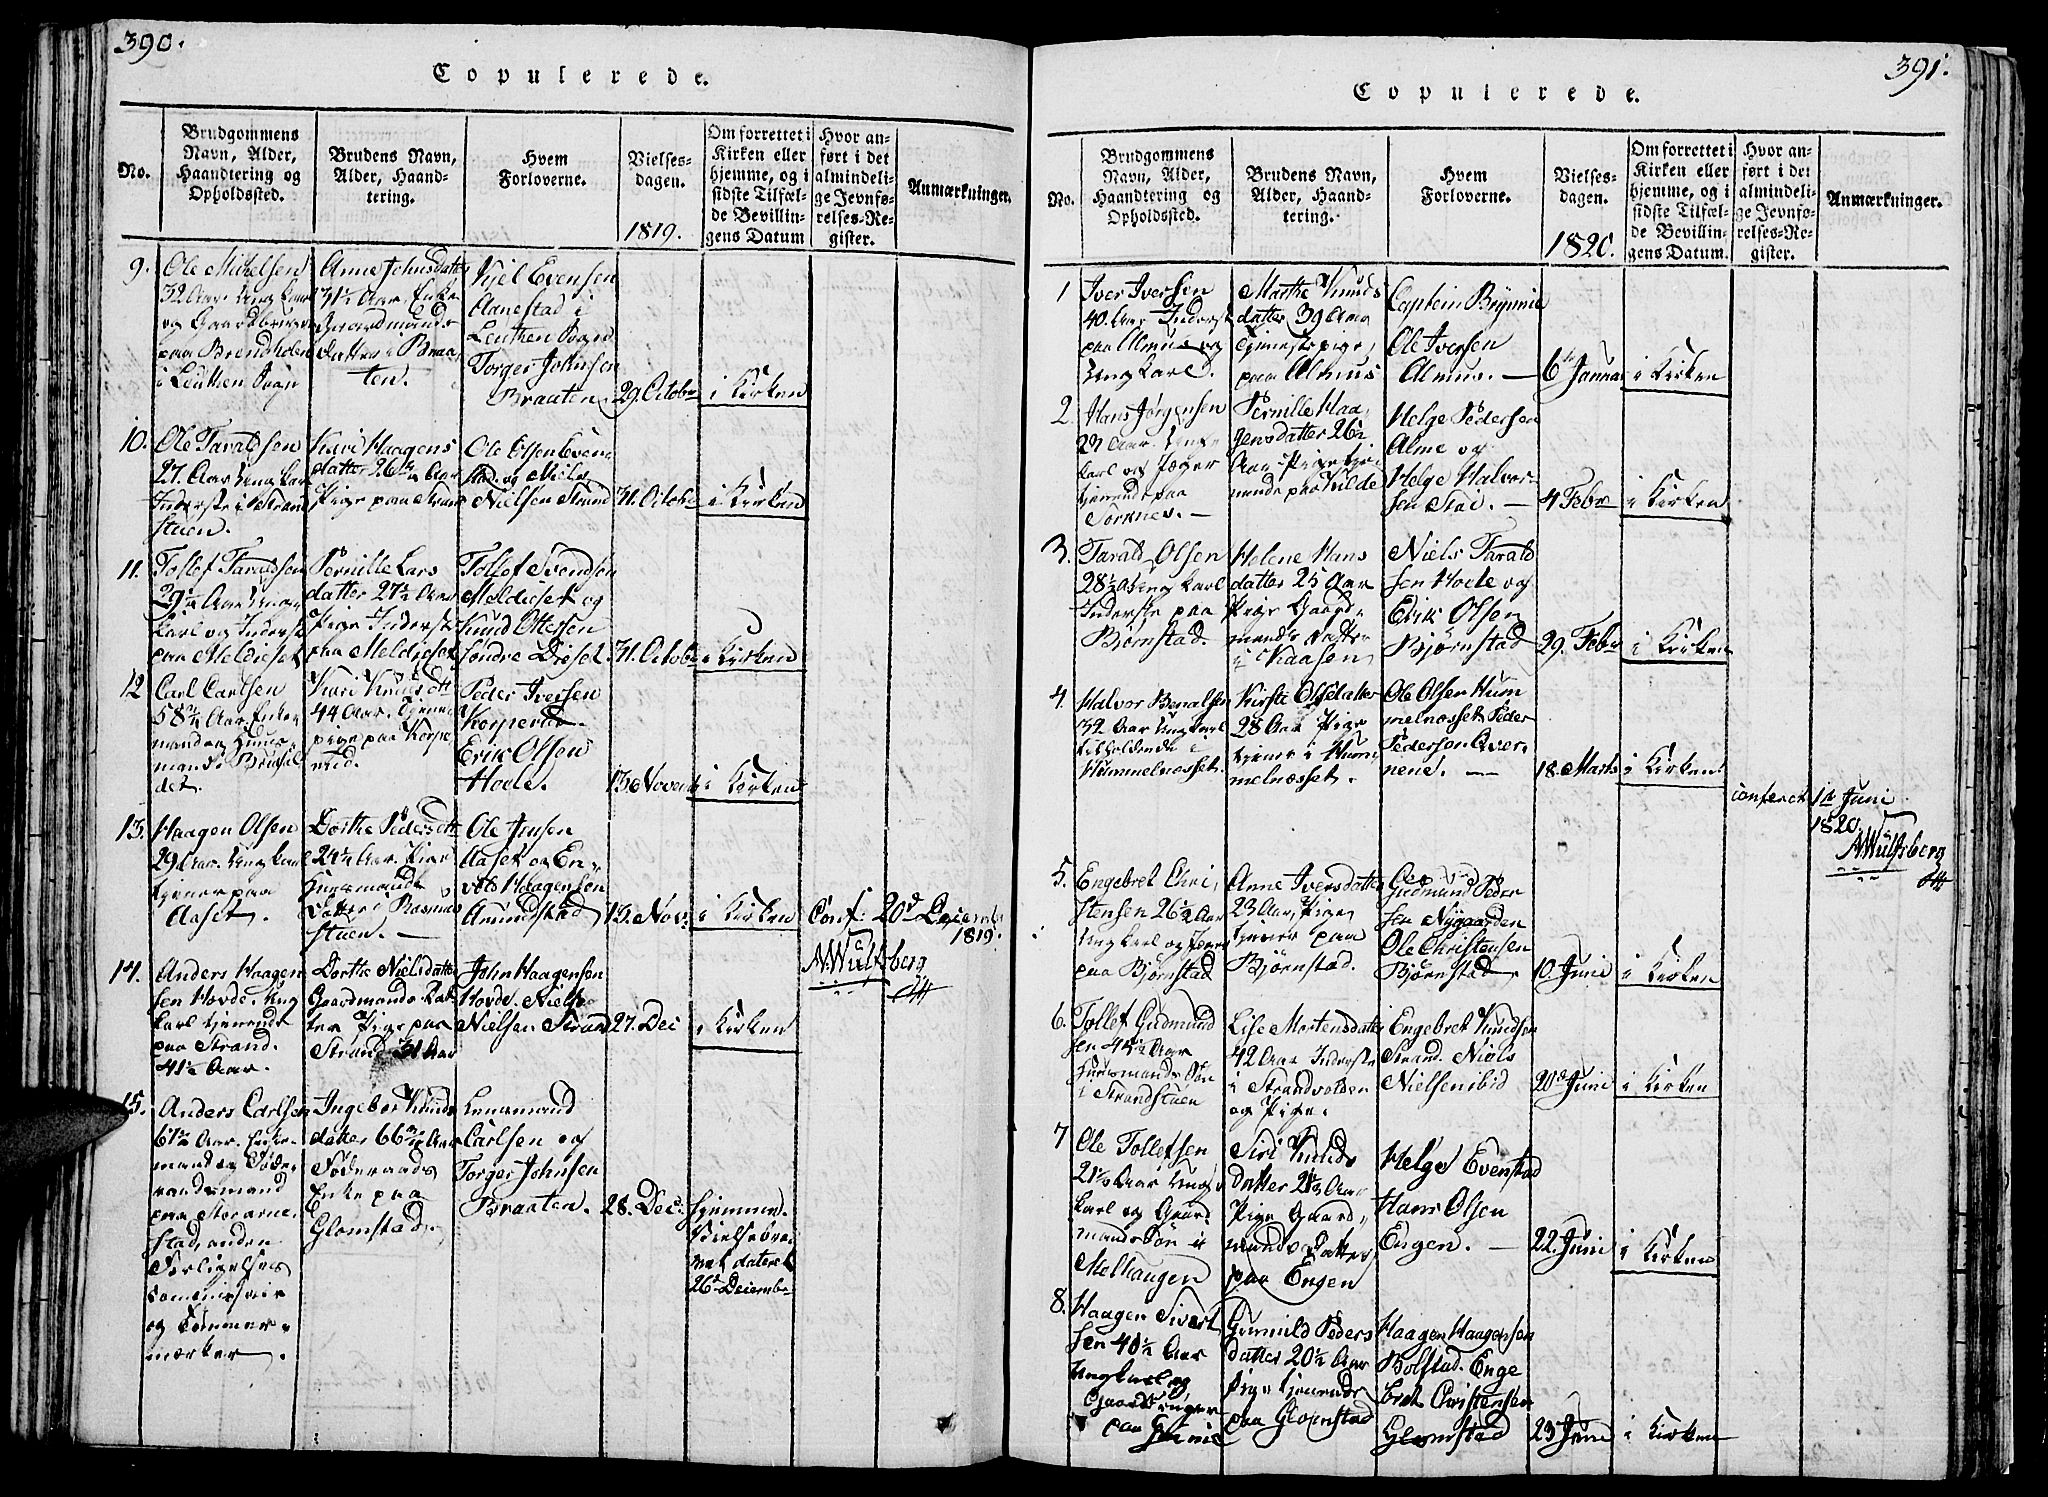 390.
Copulerede.
No.
Brudgommens
Navn, Alder,
Haandtering og
Opholdssted.
Brudens Navn,
Alder, Haand-
tering.
Hvem
Forloverne.
Vielses-
dagen.
1819.
Om forrettet i
Kirken eller
hjemme, og i
sidste Tilfæl-
de Bevillin-
gens Datum
Hvor an-
ført i det
almindeli-
ge Jevnfø-
relses-Re-
gister.
Anmærkninger.
9.
Ole Mikelsen
32 Aar. Ung karl
og Gaardbruger
paa Brendholen
i Leuthen Sogn
Anne Johnsdatter
31½ Aar. Enke
Gaardmands
datter i Braa
ten.
Kjel Evensen
Aanestad i
Leuthen Sogn
Torger Johnsen
Braaten.
29. Octobr
i Kirken
10.
Ole Taraldsen
27. Aar Ung karl
Inderste i Strand
stuen.
Kari Haagens
datter 26 Aar
Pige paa Strand
Ole Olsen Even
stad og Niels
Nielsen Strand
31. Octobr
i Kirken
11.
Tollef Taraldsen
29¼ Aar Ung
karl og Inderst
paa Meldieset
Pernille Lars
datter 27½ Aar
Pige Inderste
paa Meldieset
Tollef Svendsen
Meldieset og
Knud Ottersen
søndre Dieset.
31. Octobr
i Kirken
12
Carl Carlsen
58¾ Aar. Enke
mand og Huus
mand i
det.
Kari Knudsdtt
44 Aar. Tjene
pige paa Korpe
rud.
Peder Iversen
Korperud.
Erik Olsen
Hoele.
13. Novemb
i Kirken
13.
Haagen Olsen
29 Aar. Ung karl
tjener paa
Aaset.
Dorthe Pedersdtt
24¼ Aar. Pige
Huusmands
datter i Rasmus
stuen.
Ole Jensen
Aaset og En-
vold Haagensen
Amundstad
13. Nov.
i Kirken
Conf: 20de Decemb
1819.
AWulfsberg
14.
Anders Haagen
sen Hovde. Ung
karl tjenende
paa Strand.
41½ Aar.
Dorthe Nielsdatter
Gaardmands Dat
ter Pige paa
Strand 31 Aar
John Haagensen
Hovde. Niels
Nielsen Strand
27. Dec
i Kirken
15.
Anders Carlsen
67½ Aar. Enke-
mand og Føde-
raadsmand
paa Messarne
stad, anden
Forligelses
Commissair
og Tømmer-
mærker.
Ingebor Knuds
datter 66 Aar
Føderaads
Enke paa
Glomstad.
Lensmand
Carlsen og
Torger Johnsen
Braaten.
28. Dec:
hjemme.
Vielsebre
vet dateret
26de Decembr
391.
Copulerede.
No.
Brudgommens
Navn, Alder,
Haandtering og
Opholdssted.
Brudens Navn,
Alder, Haand-
tering.
Hvem
Forloverne.
Vielses-
dagen.
1820.
Om forrettet i
Kirken eller
hjemme, og i
sidste Tilfæl-
de Bevillin-
gens Datum.
Hvor an-
ført i det
almindeli-
ge Jevnfø-
relses-Re-
gister.
Anmærkninger.
1
Iver Iversen
40. Aar Inderst
paa Almus og
Ung karl.
Marthe Knuds
datter 39 Aar
Tjenestepige
paa Almus
Captein Brynnie
Ole Iversen
Almus. —
6te Januar
i Kirken
2
Hans Jørgensen
29 Aar. Ung
karl og Jæger
tjenende paa
Sorknes. —
Pernille Haa
gensdatter 26½
Aar Pige tje
nende paa Kilde
Helge Pedersen
Alme og
Helge Halvor-
sen Stai. —
4 Febr
i Kirken
3.
Tarald Olsen
28½ A Ung karl
Inderste paa
Bjørnstad.
Helene Hans
datter 25 Aar
Pige Gaard-
mands datter
i Kaasen
Niels Tarald
sen Hoele og
Erik Olsen
Bjørnstad
29. Febr
i Kirken
4.
Halvor Berntsen
32 Aar Ung karl
tilholdende i
Hummelnæsset.
Kirsti Olsdatter
28 Aar Pige
tjener i Hum
melnæsset.
Ole Olsen Hum
melnæsset Peder
Pedersen Qver-
nene. —
18. Marts
i Kirken
confereret 1ste Juni
1820.
AWulfsberg
5.
Engebret Chri
stensen 26½ Aar
Ung karl og tjener
paa Bjørnstad
Anne Iversdatter
23 Aar, Pige
tjener paa
Bjørnstad.
Gudmund Peder
sen Nygaarden
Ole Christensen
Bjørnstad.
10. Juni
i Kirken
6.
Tollef Gudmund
sen 44½ Aar
Huusmands Søn
i Strandstuen
Lise Mortensdatter
42 Aar Inderste
i Strandvolden
og Pige.
Engebret Knudsen
Strand. Niels
Nielsen ibid
20de Juni
i Kirken
7
Ole Tollefsen
21½ Aar Ung
karl og Gaard
mands Søn i
Melhaugen
Siri Knuds
datter 21½ Aar
Pige Gaard
mands Datter
paa Engen
Helge Evenstad
Hans Olsen
Engen. —
22. Juni
i Kirken
8.
Haagen Sivert
sen 40½ Aar
Ungkarl og
Gaardbruger
paa
Gunnild Peders
datter 20½ Aar
Pige tjenende
paa Glomstad
Haagen Haagensen
Bolstad. Enge
bret Christensen
Glomstad
23 Juni
i Kirken